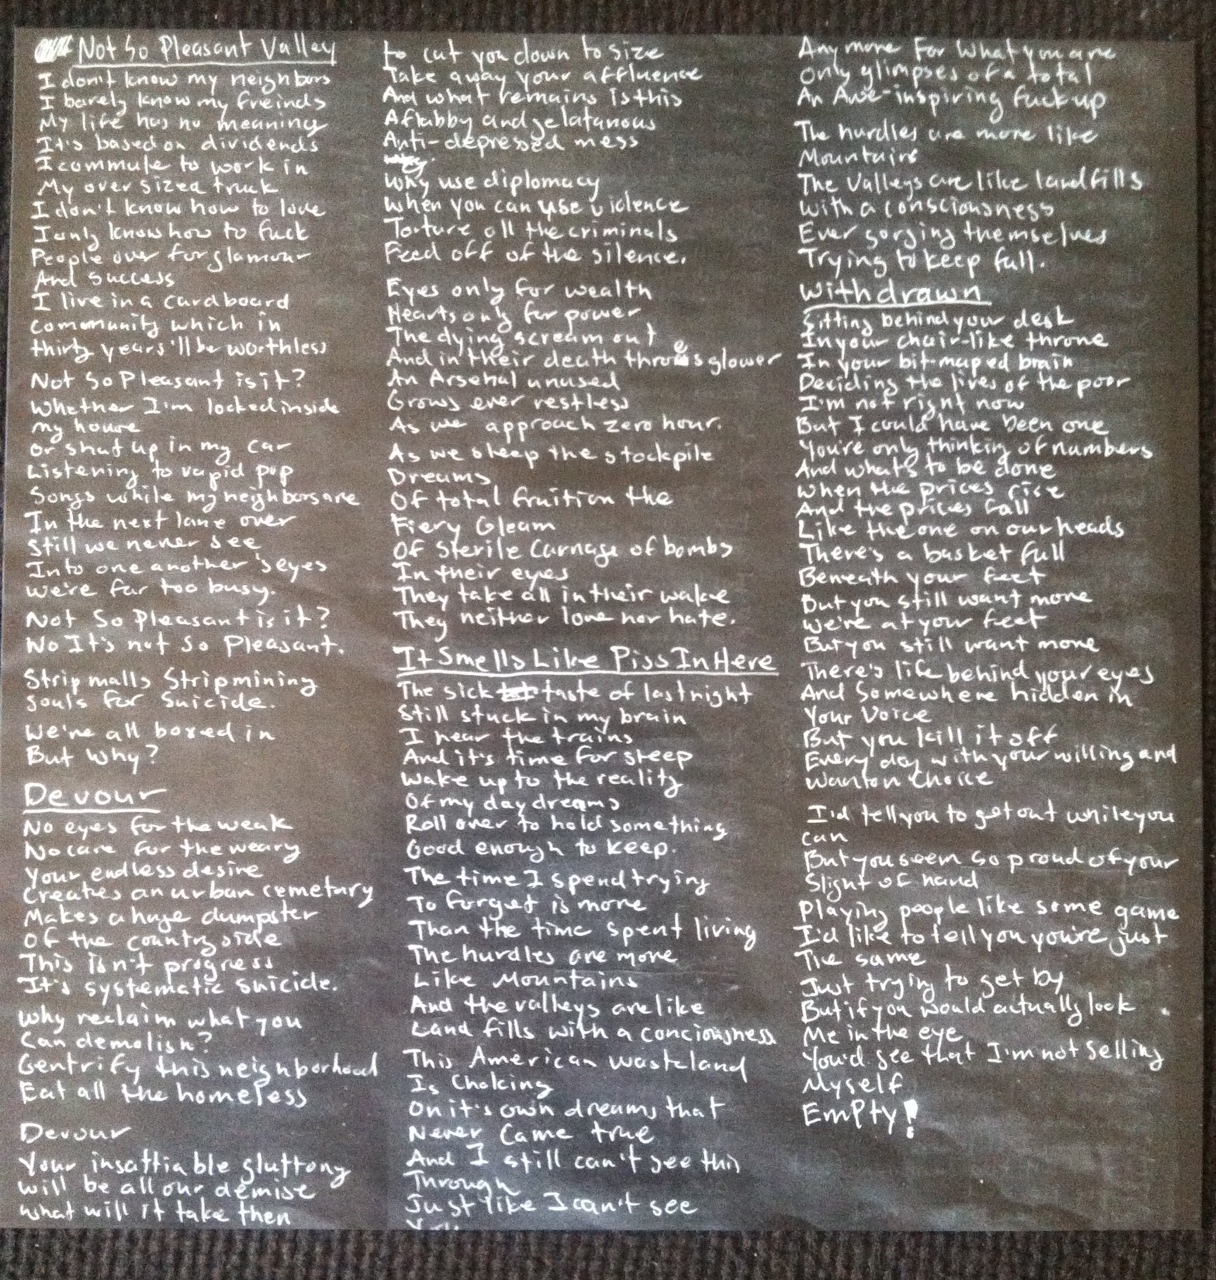 Not So Pleasant Valley
I don't know my neighbors
I barely know my freinds
My life has no meaning
It's based on dividends
I commute to work in
My over sized truck
I don't know how to love
I only know how to fuck
People over for glamour
And Success
I live in a cardboard
Community which in
thirty years'll be worthless
Not So Pleasant is it?
Whether I'm locked inside
my house
Or shut up in my car
Listening to vapid pop
Songs while my neighbors are
In the next lane over
Still we never see
Into one another's eyes
We're far too busy.
Not So Pleasant is it?
No It's not So Pleasant.
Strip malls Strip mining
Souls for Suicide.
We're all boxed in
But Why?
Devour
No eyes for the weak
No care for the weary
Your endless desire
Creates an urban cemetary
Makes a huge dumpster
Of the country side
This isn't progress
It's systematic suicide.
Why reclaim what you
Can demolish?
Gentrify this neighborhood
Eat all the homeless
Devour
Your insattiable gluttony
will be all our demise
What will it take then
to cut you down to size
Take away your affluence
And what remains is this
A flabby and gelatanous
Anti-depressed mess
Why use diplomacy
When you can use violence
Torture all the criminals
Feed off of the silence.
Eyes only for wealth
Hearts only for power
The dying scream out
And in their death throes glower
An Arsenal unused
Grows ever restless
As we approach zero hour.
As we sleep the stockpile
Dreams
Of total fruition the
Fiery Gleam
Of Sterile Carnage of bombs
In their eyes
They take all in their wake
They neither love nor hate.
It Smells Like Piss In Here
The sick taste of last night
Still stuck in my brain
I hear the trains
And it's time for sleep
Wake up to the reality
Of my day dreams
Roll over to hold something
Good enough to keep.
The time I spend trying
To forget is more
Than the time spent living
The hurdles are more
Like Mountains
And the valleys are like
Land fills with a conciousness
This American wasteland
Is Choking
On it's own dreams that
Never Came true
And I still can't see this
Through
Just like I can't see
You
Any more For What you are
Only glimpses of a total
An Awe-inspiring fuck up
The hurdles are more like
Mountains
The Valleys are like landfills
With a consciousness
Ever gorging themselves
Trying to keep full.
Withdrawn
Sitting behind your desk
In your chair-like throne
In your bit-maped brain
Deciding the lives of the poor
I'm not right now
But I could have been one
You're only thinking of numbers
And what's to be done
When the prices rise
And the prices fall
Like the one on our heads
There's a basket full
Beneath your feet
But you still want more
We're at your feet
But you still want more
There's life behind your eyes
And Somewhere hidden in
Your Voice
But you kill it off
Every day with your willing and
Wanton Choice
I'd tell you to get out while you
can
But you seem so proud of your
Slight of hand
Playing people like some game
I'd like to tell you you're just
The same
Just trying to get by
But if you would actually look
Me in the eye
You'd see that I'm not Selling
Myself
Empty!